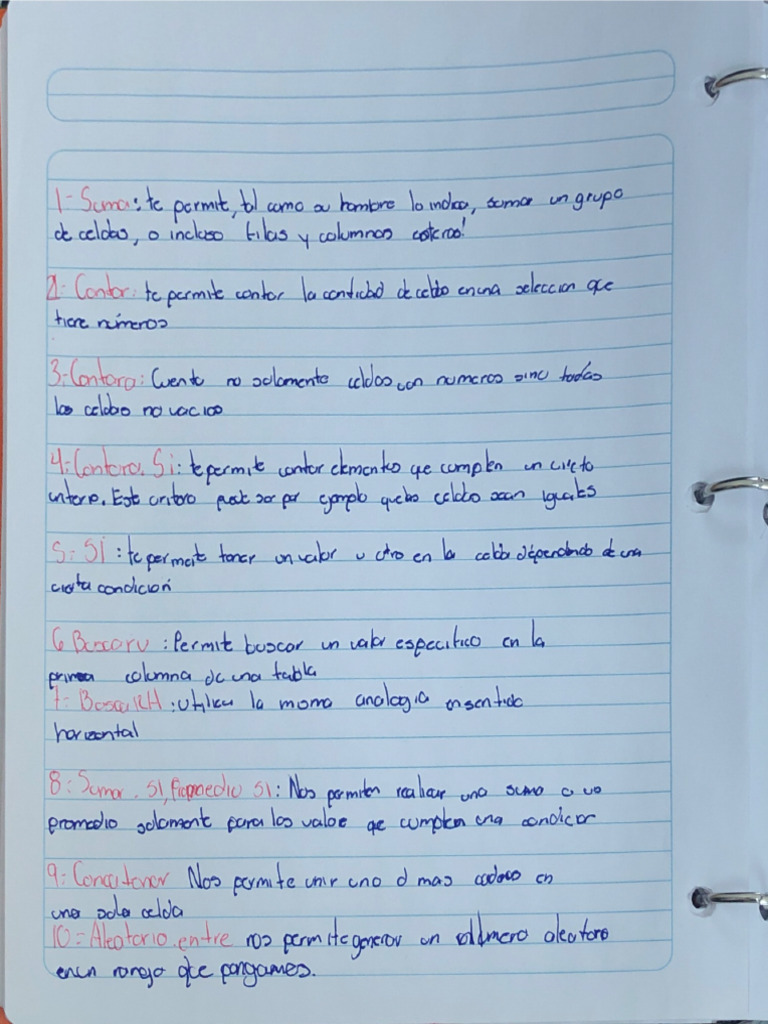 1- Suma: te permit, tal como su nombre lo indica, sumar un grupo
de celdas, o incluso filas y columnas enteras!
2- Contar: te permite contar la cantidad de celdas en una seleccion que
tiene números
3-Contara: Cuenta no solamente celdas con numeros sino todas
las celdas no vacias
4-Contara. Si: te permite contar elementos que cumplen un cierto
criterio. Este criterio puede ser por ejemplo que las celdas sean iguales
5- Si : te permite tener un valor u otro en la celda dependiendo de una
cierta condición
6 Buscarv : Permite buscar un valor especifico en la
primera columna de una tabla
7- BuscarH : Utiliza la misma analogia en sentido
horizontal
8- Sumar. SI, Promedio SI: Nos permiten realizar una suma o un
promedio solamente para los valores que cumplen una condicion
9- Concatenar Nos permite unir uno o mas cadenas en
una sola celda
10= Aleatorio.entre nos permite generar un número aleatorio
en un rango que pongamos.